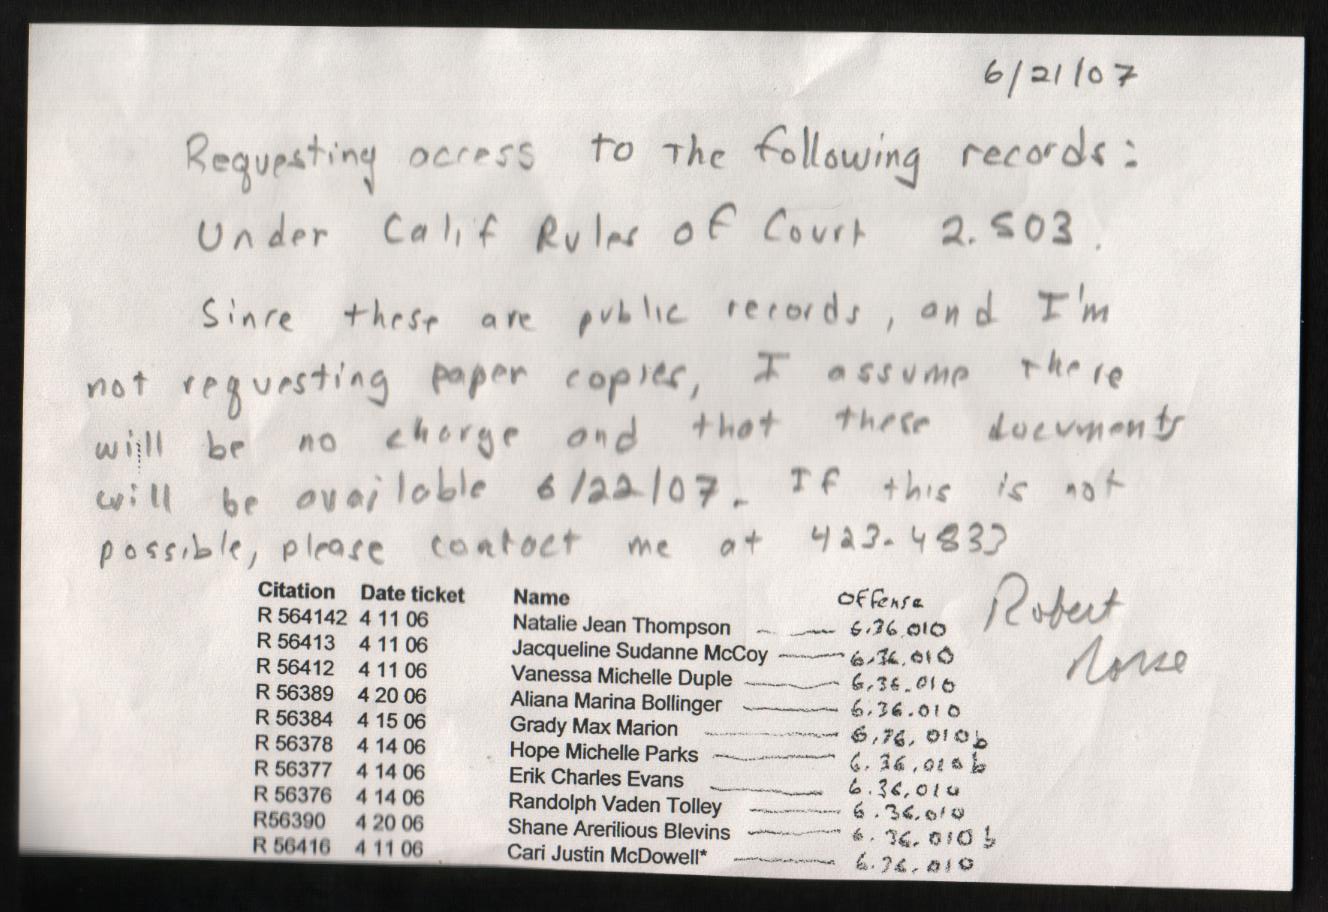 6/21/07
Requesting access to the following records:
Under Calif Rules of Court 2.503.
Since these are public records, and I'm
not requesting paper copies, I assume there
will be no charge and that these documents
will be available 6/22/07. If this is not
possible, please contact me at 423-4833
Citation Date ticket Name Offense
R 564142 4 11 06 Natalie Jean Thompson 6.36.010
R 56413 4 11 06 Jacqueline Sudanne McCoy 6.36.010
R 56412 4 11 06 Vanessa Michelle Duple 6.36.010
R 56389 4 20 06 Aliana Marina Bollinger 6.36.010
R 56384 4 15 06 Grady Max Marion 6.36.010b
R 56378 4 14 06 Hope Michelle Parks 6.36.010b
R 56377 4 14 06 Erik Charles Evans 6.36.010
R 56376 4 14 06 Randolph Vaden Tolley 6.36.010
R56390 4 20 06 Shane Arerilious Blevins 6.36.010b
R 56416 4 11 06 Cari Justin McDowell* 6.36.010
Robert
Norse